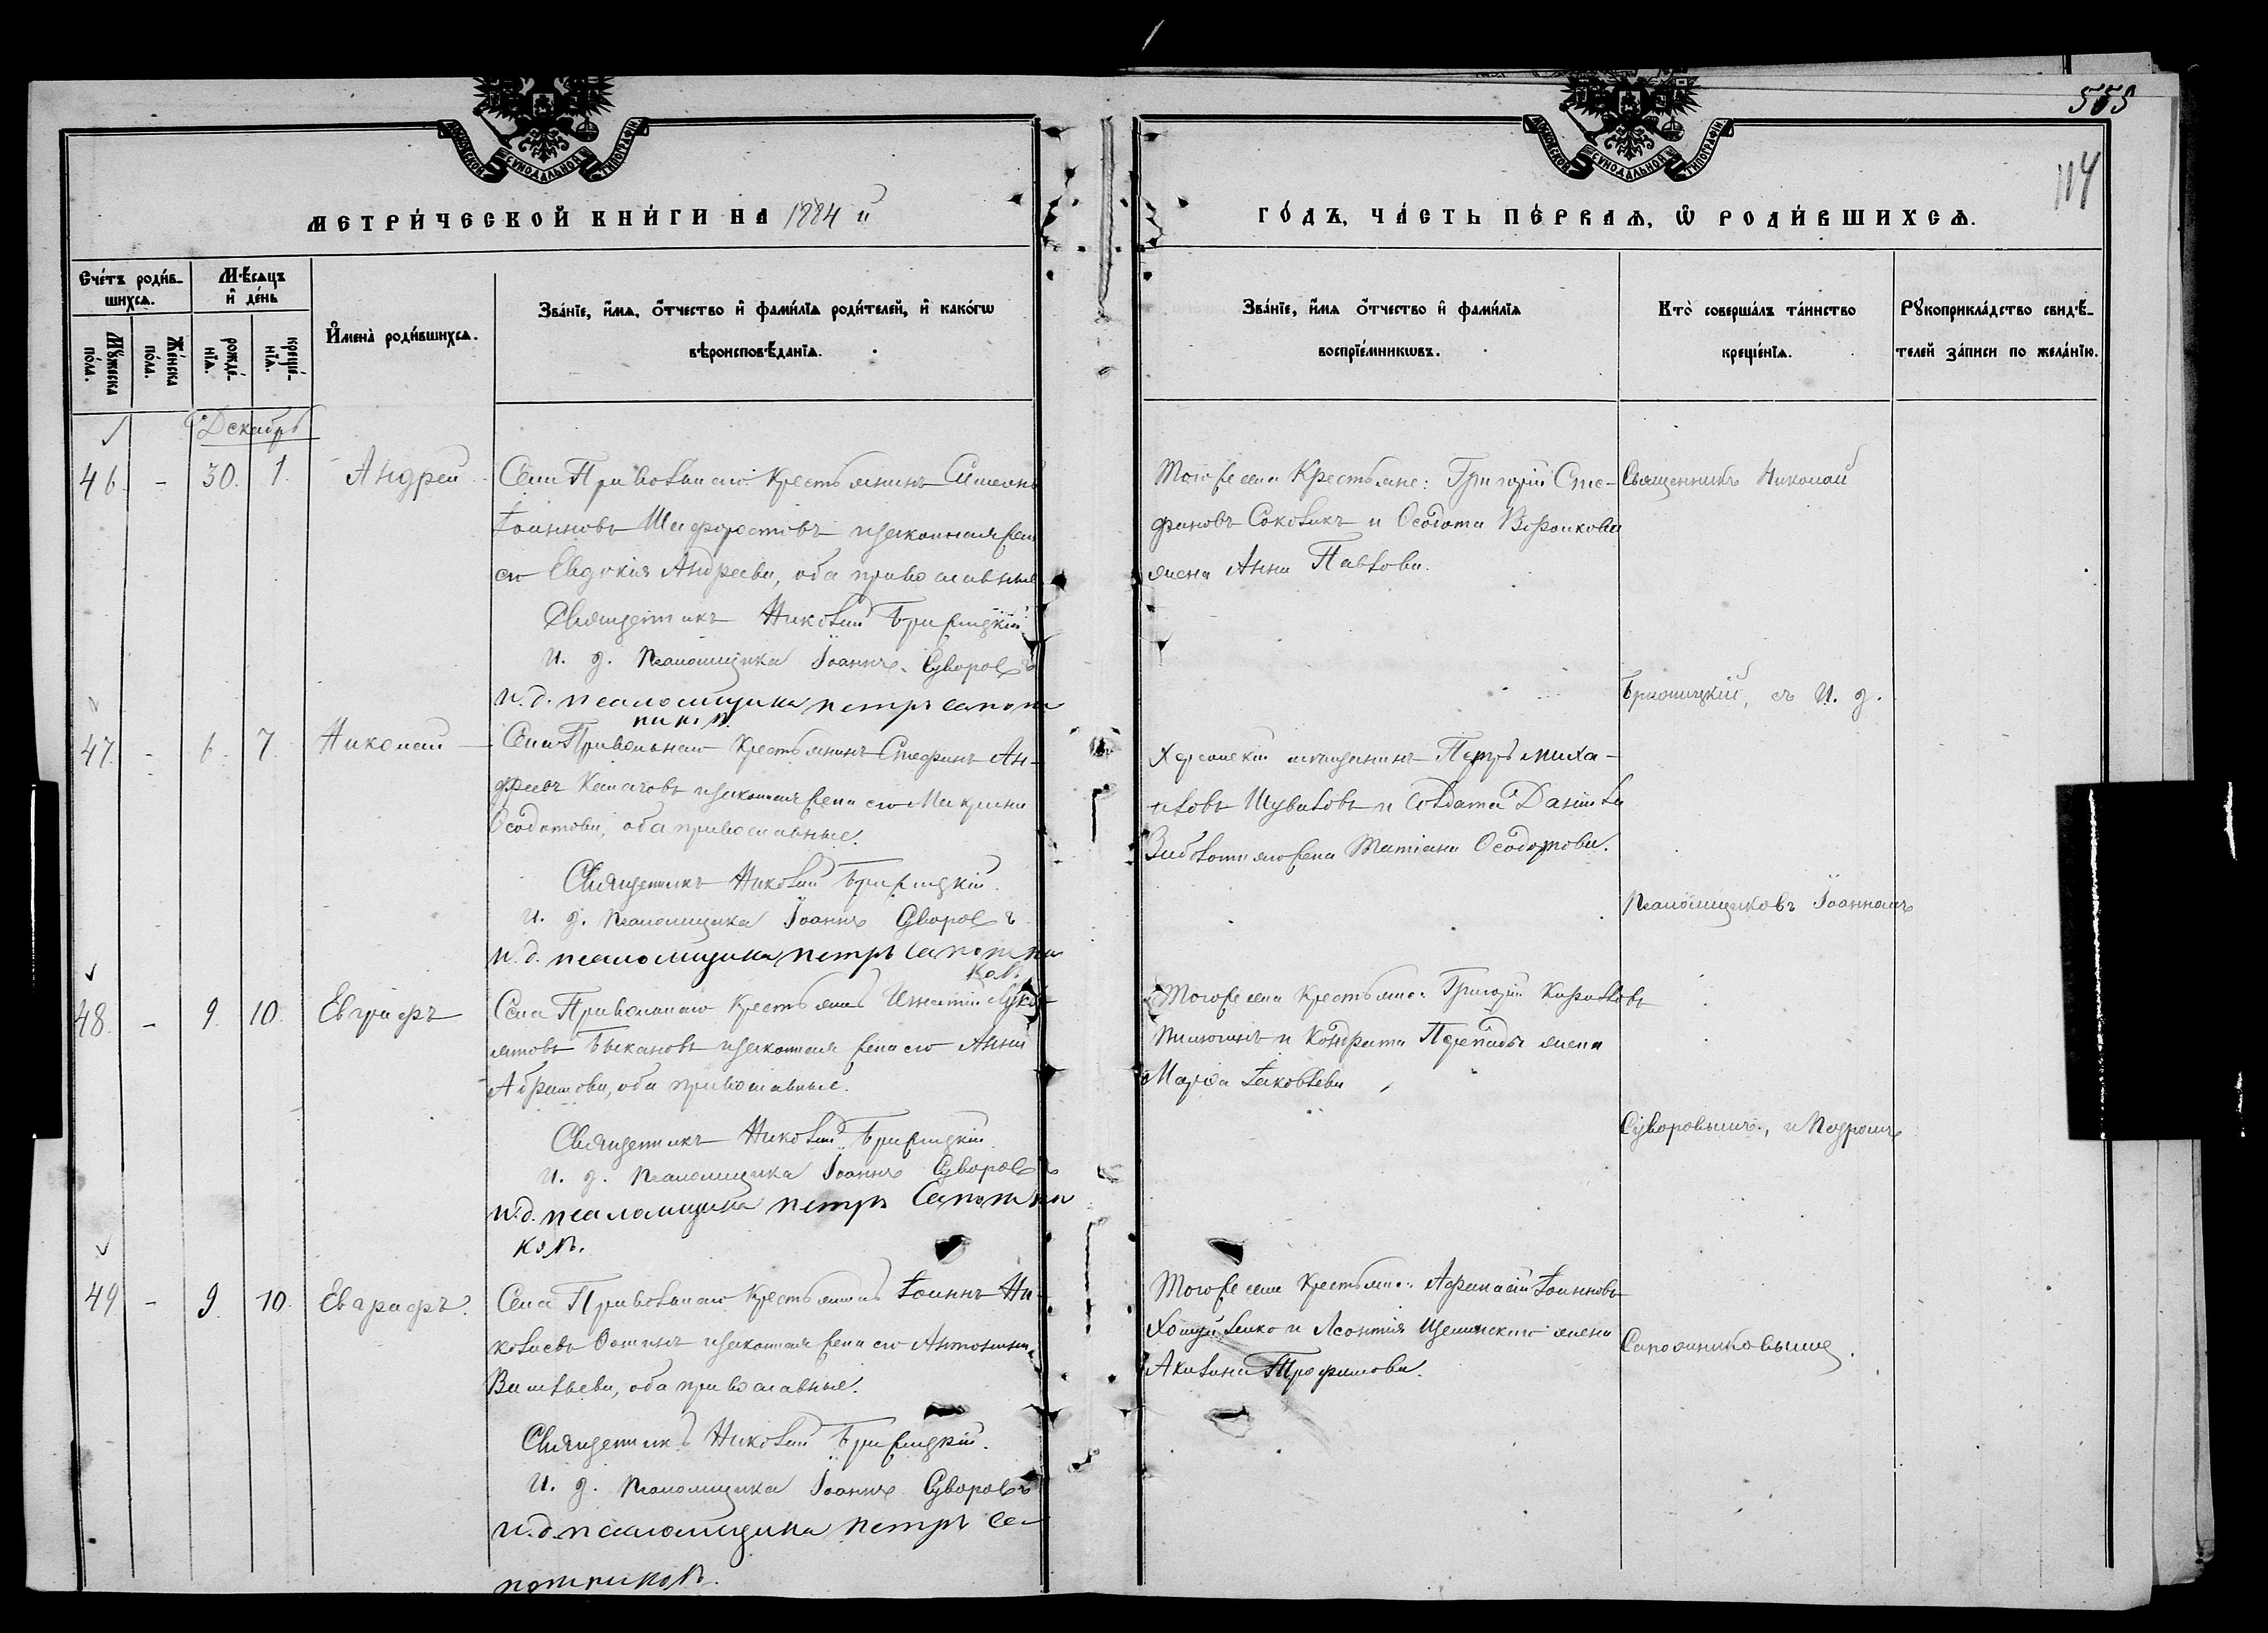 555
114
МОСКОВСКОЙ СѴНОДАЛЬНОЙ ТИПОГРАФІИ.
МОСКОВСКОЙ СѴНОДАЛЬНОЙ ТИПОГРАФІИ.
МЕТРИ́ЧЕСКОЙ КНИ́ГИ НА 1884 й
ГО́ДЪ, ЧА́СТЬ ПЕ́РВАѦ, Ѡ РОДИ́ВШИХСѦ.
Сче́тъ роди́в-
шихсѧ.
Мꙋ́жеска по́ла.
Же́нска по́ла.
Мѣ́сѧцъ
и҆ де́нь
рожде́-
нїѧ.
креще́-
нїѧ.
И҆мена̀ роди́вшихсѧ.
Зва́нїе, и҆́мѧ, ѻ҆́тчество и҆ фами́лїѧ роди́телей, и҆ како́гѡ
вѣроисповѣ́данїѧ.
Зва́нїе, и҆́мѧ ѻ҆́тчество и҆ фами́лїѧ
воспрїе́мникѡвъ.
Кто̀ соверша́лъ та́инство
креще́нїѧ.
Рꙋкоприкла́дство свидѣ́-
телей за́писи по жела́нїю.
Декабрь
46. - 30. 1. Андрей
Села Привольнаго крестьянинъ Симеонъ
Іоанновъ Шафоростовъ и законная жена
его Евдокія Андреева, оба православные
Священникъ Николай Бржицкій
И. д. Псаломщика Іоаннъ Суворовъ
и. д. псаломщика петръ сапож
ников.
Тогоже села Крестьяне: Григорій Сте-
фановъ Соколикъ и Ѳеодота Воронкова
жена Анна Павлова.
Священникъ Николай
Бржицкій, съ И. д.
47. - 6. 7. Николай
Села Привольнаго Крестьянинъ Стефанъ Ан-
дреевъ Капачовъ и законная жена его Макрина
Ѳеодотова, оба православные.
Священникъ Николай Бржицкій.
и. д. Псаломщика Іоаннъ Суворовъ
и. д. псаломщика петръ Сапожни
ков.
Херсонскій мѣщанинъ Петръ Миха-
иловъ Шуваловъ и Солдата Даніила
жена Татіана Ѳеодотова.
Псаломщиковъ Іоанномъ
48. - 9. 10. Евграфъ
Села Привольнаго Крестьянинъ Игнатій
Быкановъ и законная жена его Анна
Абрамова, оба православные.
Священникъ Николай Бржицкій.
И. д. Псаломщика Іоаннъ Суворовъ
и. д. псаломщика петръ Сапожни
ков.
Тогоже села Крестьяне: Григорій Кириловъ
и Кондрата жена
Марѳа Іаковлева
Суворовымъ, и Петромъ
49 - 9. 10. Евграфъ.
Села Привольнаго Крестьянинъ Іоаннъ Ни-
колаевъ и законная жена его Антонина
Васильева, оба православные.
Священникъ Николай Бржицкій.
И. д. Псаломщика Іоаннъ Суворовъ
и. д. псаломщика петръ Са-
пожников.
Тогоже села Крестьяне: Афанасій Іоанновъ
и Леонтія Щепинскаго жена
Акилина Трофимова.
Сапожниковымъ.